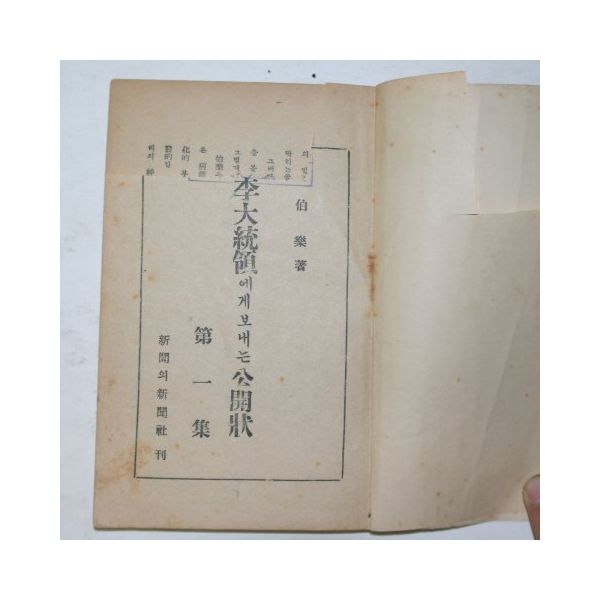 伯樂著
李大統領에게보내는公開狀
第一集
新聞의新聞社刊